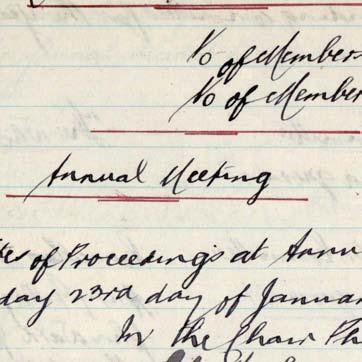 No of Members
No of Member
Annual Meeting
of Proceedings at Annu
day 23rd day of Januar
In the Chair